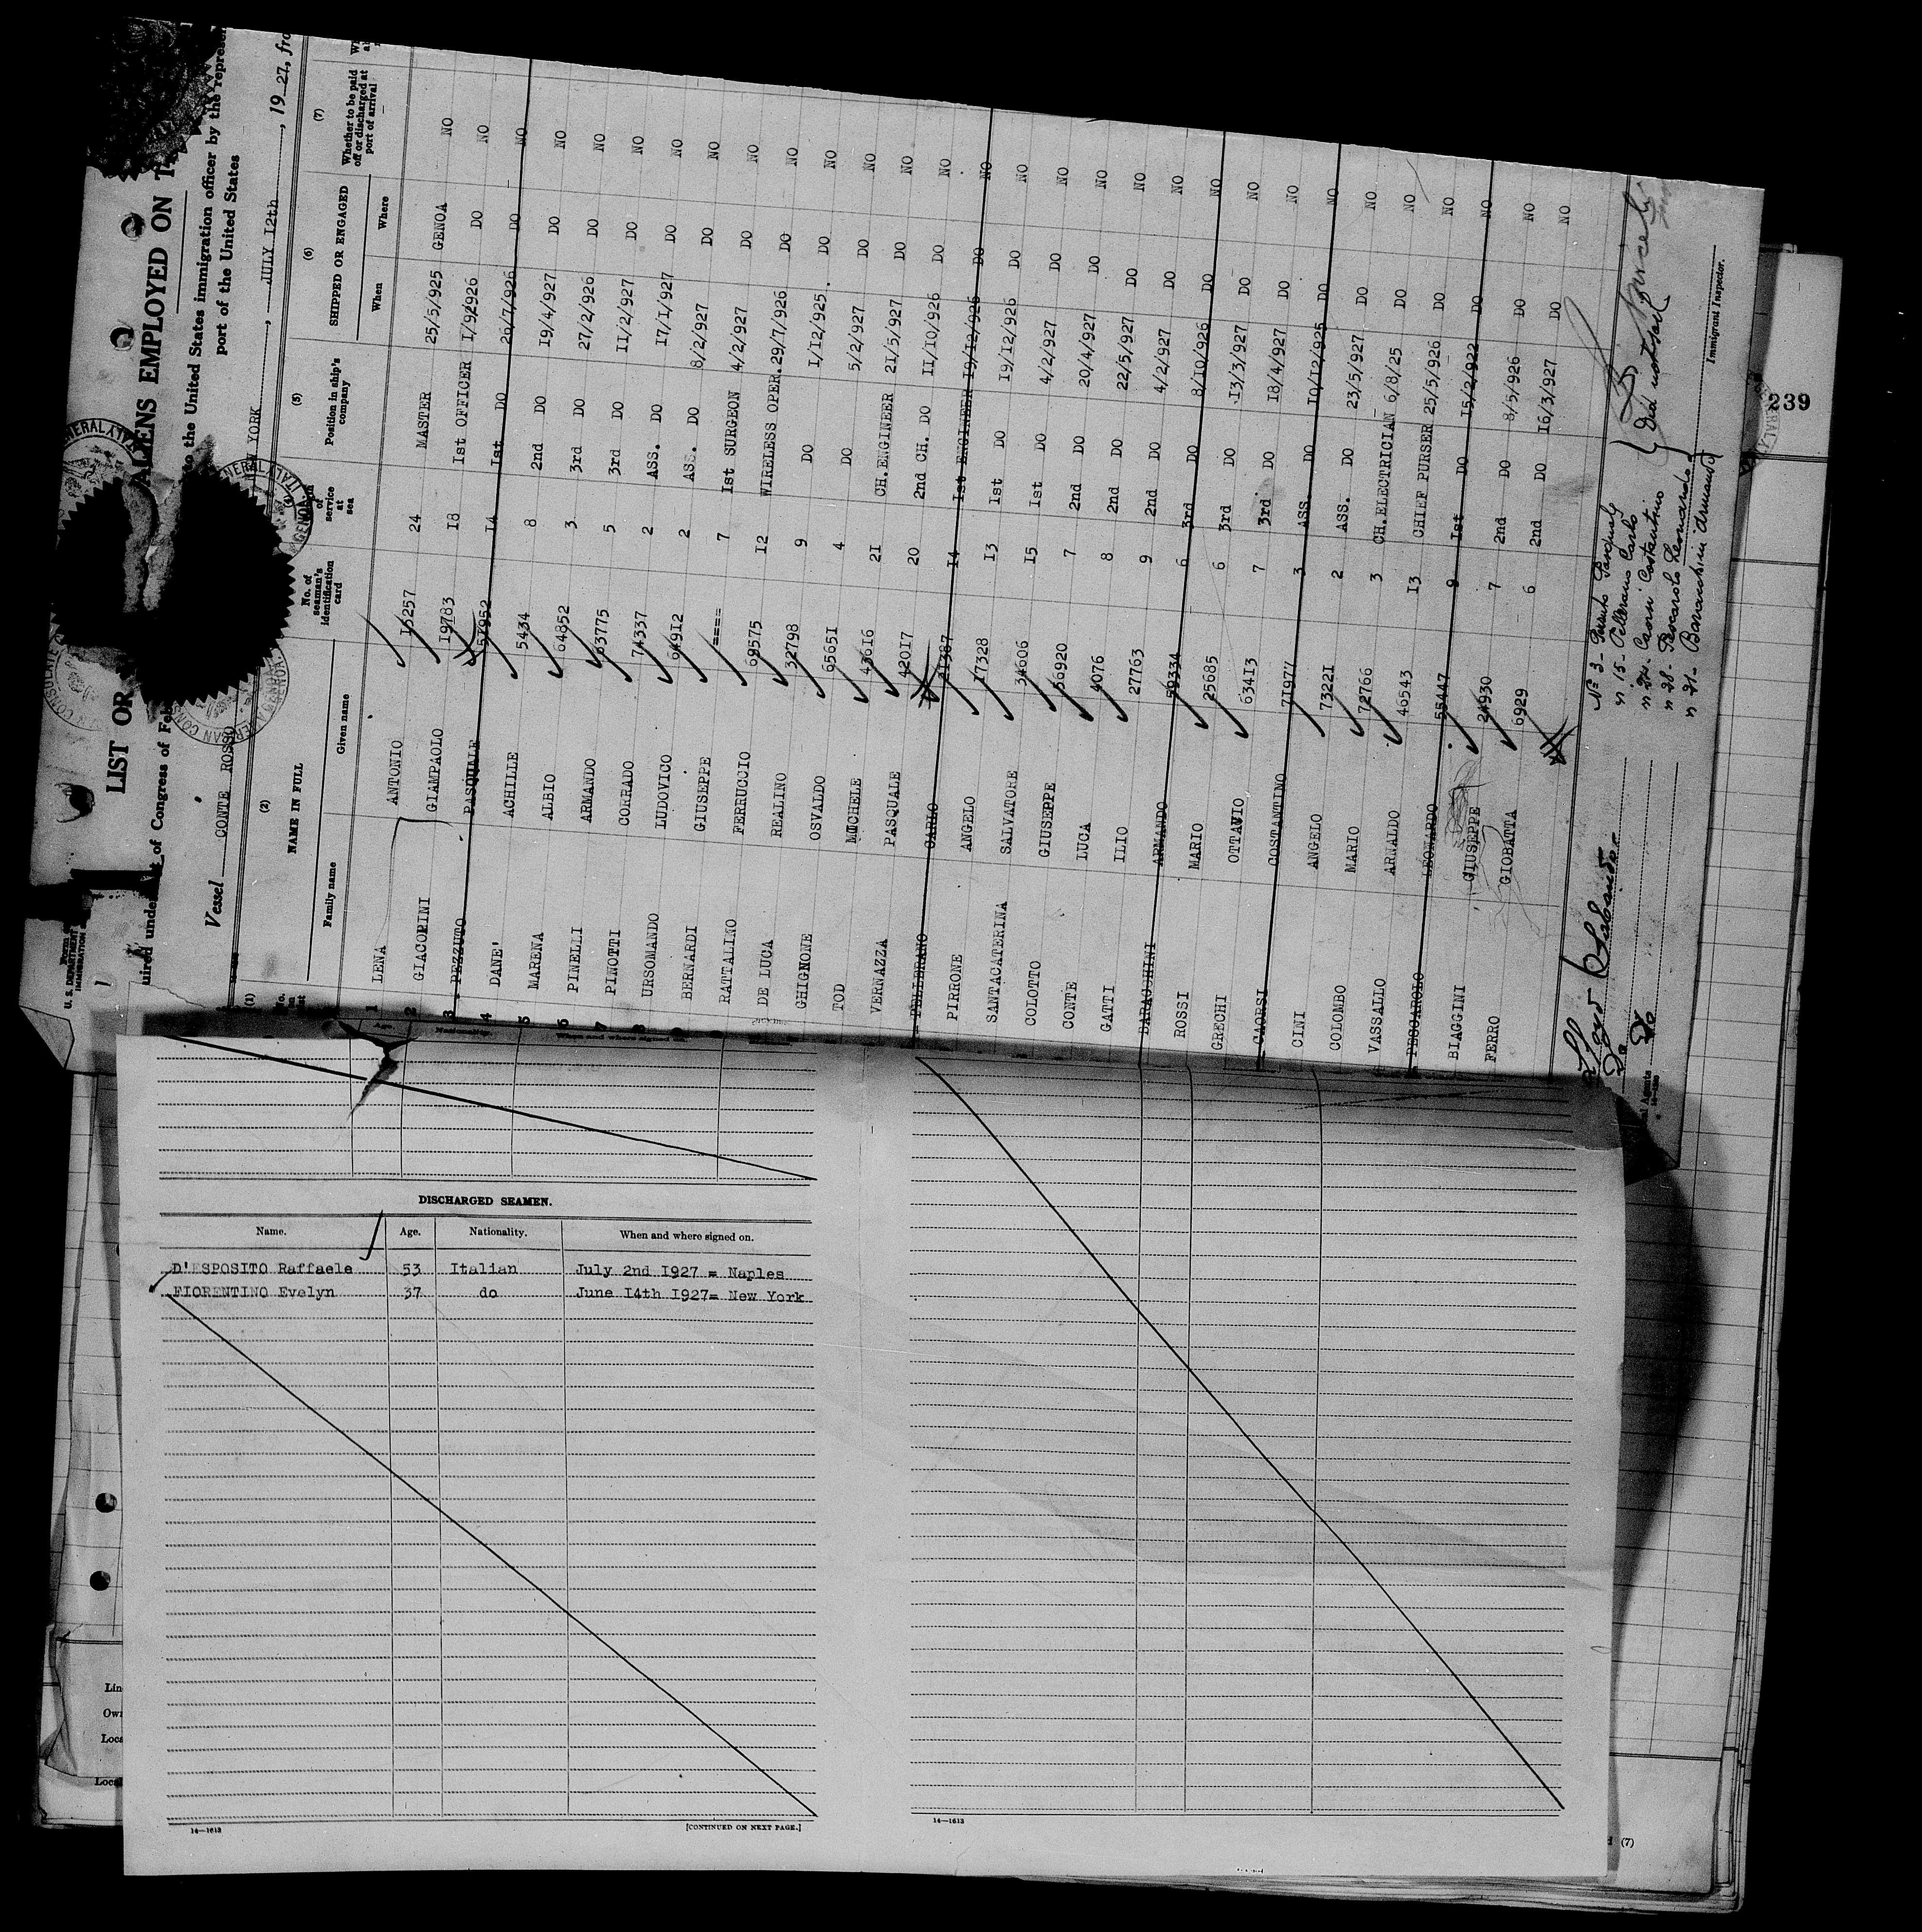 LIST OR
ALIENS EMPLOYED ON
uired under
of Congress of Feb
to the United States immigration officer by the represen
port of the United States
U. S. DEPARTMENT
IMMIGRATION
Vessel CONTE ROSSO, NEW YORK, JULY 12th, 19 27, fro
(1) (2) (5) (6) (7)
NAME IN FULL
Family name Given name
No. of seaman's identification card
of service at sea
Position in ship's company
SHIPPED OR ENGAGED
When Where
Whether to be paid off or discharged at port of arrival
1 LENA ANTONIO 13257 24 MASTER 25/5/925 GENOA NO
2 GIACOPINI GIAMPAOLO 19783 18 1st OFFICER 926 DO NO
3 PEZZUTO PASQUALE 51952 14 1st DO 26/7/926 DO NO
4 DANE' ACHILLE 5434 8 2nd DO 19/4/927 DO NO
5 MARENA ALBIO 64852 3 3rd DO 27/2/926 DO NO
6 PINELLI ARMANDO 63775 5 3rd DO 11/2/927 DO NO
7 PINOTTI CORRADO 74337 2 ASS. DO 17/1/927 DO NO
8 URSOMANDO LUDOVICO 64912 2 ASS. DO 8/2/927 DO NO
BERNARDI GIUSEPPE ===== 7 1st SURGEON 4/2/927 DO NO
RATTALINO FERRUCCIO 69575 12 WIRELESS OPER. 29/7/926 DO NO
DE LUCA REALINO 32798 9 DO 1/12/925 DO NO
GHIGNONE OSVALDO 65651 4 DO 5/2/927 DO NO
TOD MICHELE 43616 21 CH.ENGINEER 21/5/927 DO NO
VERNAZZA PASQUALE 42017 20 2nd CH. DO 11/10/926 DO NO
PELLERANO CARLO 31387 14 1st ENGINEER 19/12/926 DO NO
PIRRONE ANGELO 17328 13 1st DO 19/12/926 DO NO
SANTACATERINA SALVATORE 34606 15 1st DO 4/2/927 DO NO
COLOTTO GIUSEPPE 56920 7 2nd DO 20/4/927 DO NO
CONTE LUCA 4076 8 2nd DO 22/5/927 DO NO
GATTI ILIO 27763 9 2nd DO 4/2/927 DO NO
BARACCHINI ARMANDO 59334 6 3rd DO 8/10/926 DO NO
ROSSI MARIO 25685 6 3rd DO 13/3/927 DO NO
GRECHI OTTAVIO 63413 7 3rd DO 18/4/927 DO NO
CAORSI COSTANTINO 71977 3 ASS. DO 10/12/925 DO NO
CINI ANGELO 73221 2 ASS. DO 23/5/927 DO NO
COLOMBO MARIO 72766 3 CH.ELECTRICIAN 6/8/25 DO NO
VASSALLO ARNALDO 46543 13 CHIEF PURSER 25/5/926 DO NO
PESCAROLO LEONARDO 55447 9 1st DO 15/2/922 DO NO
BIAGGINI GIUSEPPE 24930 7 2nd DO 8/5/926 DO NO
FERRO GIOBATTA 6929 6 2nd DO 16/3/927 DO NO
Lloyd Sabaudo
Nº 3 - Pezzuto Pasquale
n 15 - Pellerano Carlo
n 24 - Caorsi Costantino
n 28 - Pescarolo Leonardo
n 21 - Baracchini Armando
Did not sail
Immigrant Inspector.
239
Age. Nationality. When and where signed on.
DISCHARGED SEAMEN.
Name. Age. Nationality. When and where signed on.
D'ESPOSITO Raffaele 53 Italian July 2nd 1927 = Naples
FIORENTINO Evelyn 37 do June 14th 1927= New York
14—1613
[CONTINUED ON NEXT PAGE.]
14—1613
(7)